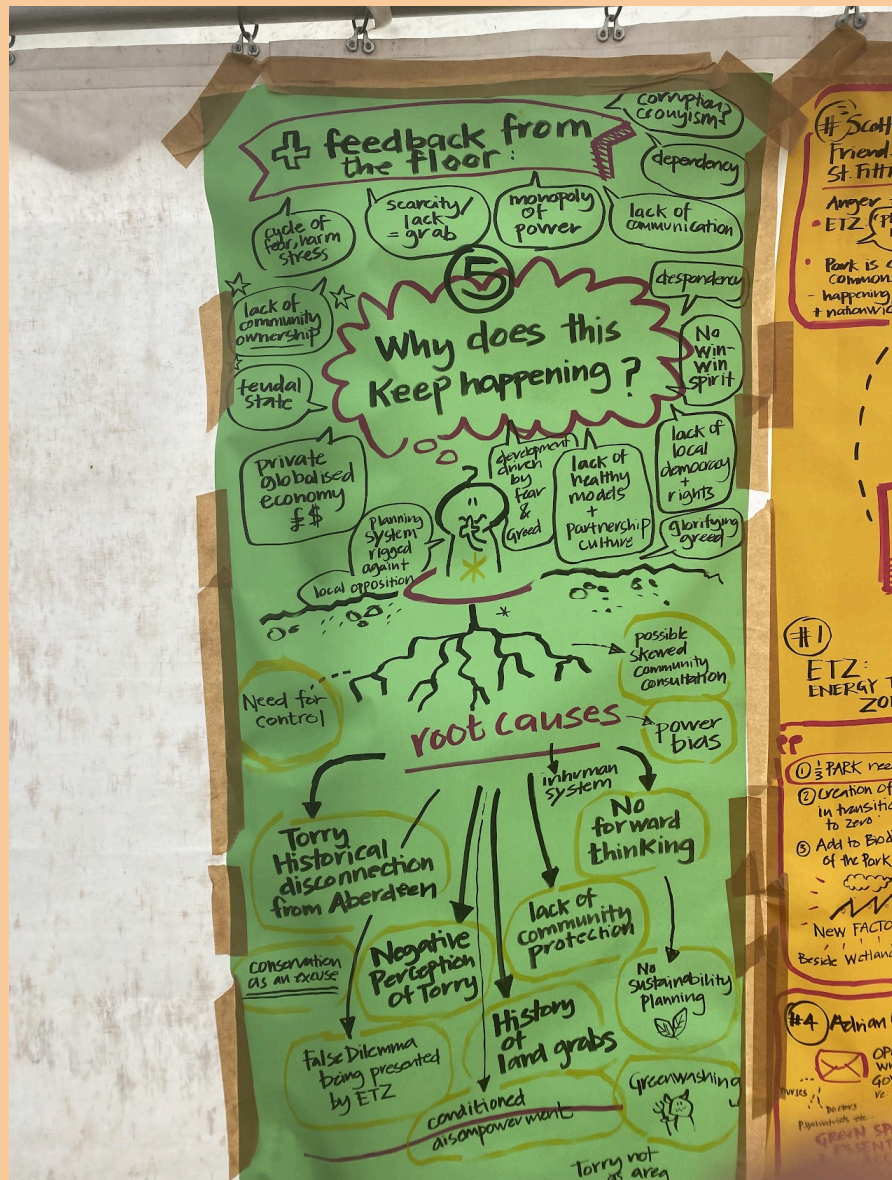 + feedback from
the floor:
corruption?
cronyism?
dependency
cycle of
fear, harm
stress
scarcity/
lack
= grab
monopoly
of
power
lack of
communication
5
Why does this
Keep happening?
despondency
lack of
community
ownership
No
win-
win
spirit
feudal
state
private
globalised
economy
£ $
planning
system
rigged
againt
local opposition
development
driven
by
fear
&
Greed
lack of
healthy
models
+
partnership
culture
lack of
local
democracy
+
rights
glorifying
greed
possible
skewed
community
consultation
Need for
control
root causes
power
bias
inhuman
system
No
forward
thinking
Torry
Historical
disconnection
from Aberdeen
lack of
community
protection
Negative
Perception
of Torry
conservation
as an excuse
No
sustainability
planning
History
of
land grabs
False Dilemma
being presented
by ETZ
Greenwashing
conditioned
disempowerment
Torry not
as area
# Scott
Friend
St. Fitti
Anger
ETZ
Park is
common
- happening
+ nationwid
#1
ETZ:
ENERGY T
ZO
① ⅓ PARK nee
② Creation of
in transitio
to zero
③ Add to Biod
of the Park
New FACTO
Beside Wetlan
#4 Adrian
nurses
Doctors
Psychiatrists etc
GREEN SP